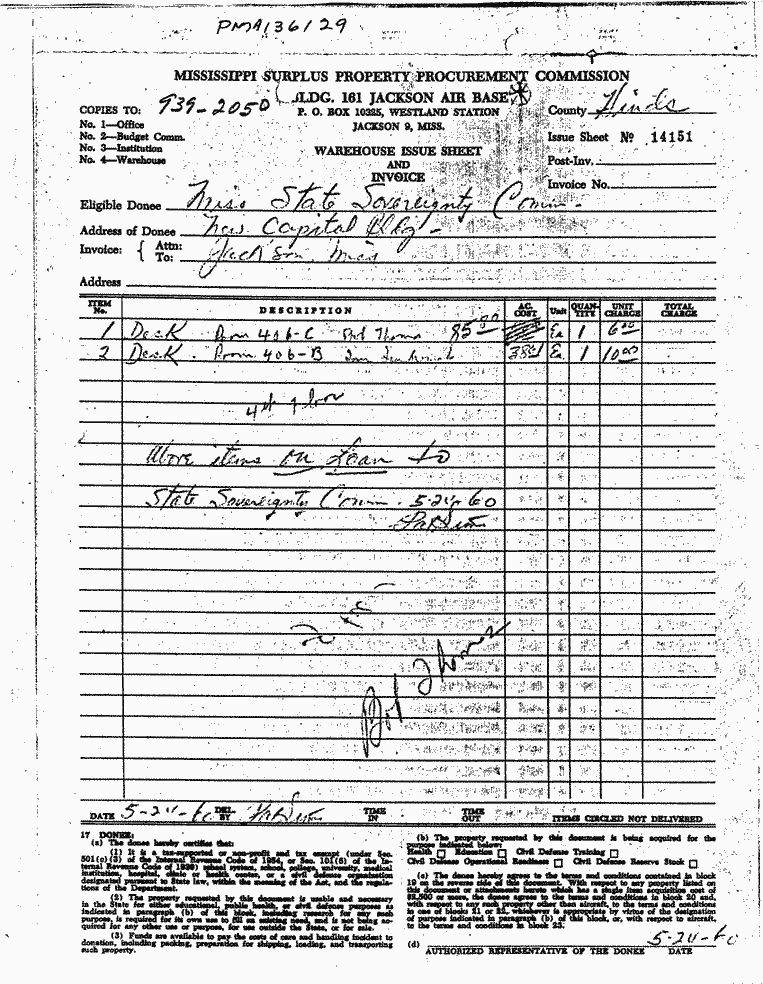 PMA136129
MISSISSIPPI SURPLUS PROPERTY PROCUREMENT COMMISSION
939-2050
BLDG. 161 JACKSON AIR BASE
P. O. BOX 10325, WESTLAND STATION
JACKSON 9, MISS.
COPIES TO:
No. 1—Office
No. 2—Budget Comm.
No. 3—Institution
No. 4—Warehouse
WAREHOUSE ISSUE SHEET
AND
INVOICE
County Hinds
Issue Sheet No 14151
Post-Inv.
Invoice No.
Eligible Donee Miss State Sovereignty Comm-
Address of Donee New Capitol Bldg-
Invoice: { Attn: To: Jackson Miss
Address
ITEM No. DESCRIPTION AC. COST Unit QUAN-TITY UNIT CHARGE TOTAL CHARGE
1 Desk Room 406-C Bob Thomas 85.00 Ea 1 6.00
2 Desk. Room 406-B Ea. 1 10.00
4th floor
Above items on Loan to
State Sovereignty Comm. 5-24-60
Bob Thomas
DATE 5-24-60 DEL. BY TIME IN TIME OUT ITEMS CIRCLED NOT DELIVERED
17 DONEE:
(a) The donee hereby certifies that:
(1) It is a tax-supported or non-profit and tax exempt (under Sec.
501(c)(3) of the Internal Revenue Code of 1954, or Sec. 101(6) of the In-
ternal Revenue Code of 1939) school system, school, college, university, medical
institution, hospital, clinic or health center, or a civil defense organization
designated pursuant to State law, within the meaning of the Act, and the regula-
tions of the Department.
(2) The property requested by this document is usable and necessary
in the State for either educational, public health, or civil defense purposes as
indicated in paragraph (b) of this block, including research for any such
purpose, is required for its own use to fill an existing need, and is not being ac-
quired for any other use or purpose, for use outside the State, or for sale.
(3) Funds are available to pay the costs of care and handling incident to
donation, including packing, preparation for shipping, loading, and transporting
such property.
(b) The property requested by this document is being acquired for the
purpose indicated below:
Health □ Education □ Civil Defense Training □
Civil Defense Operational Readiness □ Civil Defense Reserve Stock □
(c) The donee hereby agrees to the terms and conditions contained in block
19 on the reverse side of this document. With respect to any property listed on
this document or attachments hereto which has a single item acquisition cost of
$2,500 or more, the donee agrees to the terms and conditions in block 20 and,
with respect to any such property other than aircraft, to the terms and conditions
in one of blocks 21 or 22, whichever is appropriate by virtue of the designation
of purpose indicated in paragraph (b) of this block, or, with respect to aircraft,
to the terms and conditions in block 23.
5-24-60
(d) AUTHORIZED REPRESENTATIVE OF THE DONEE DATE